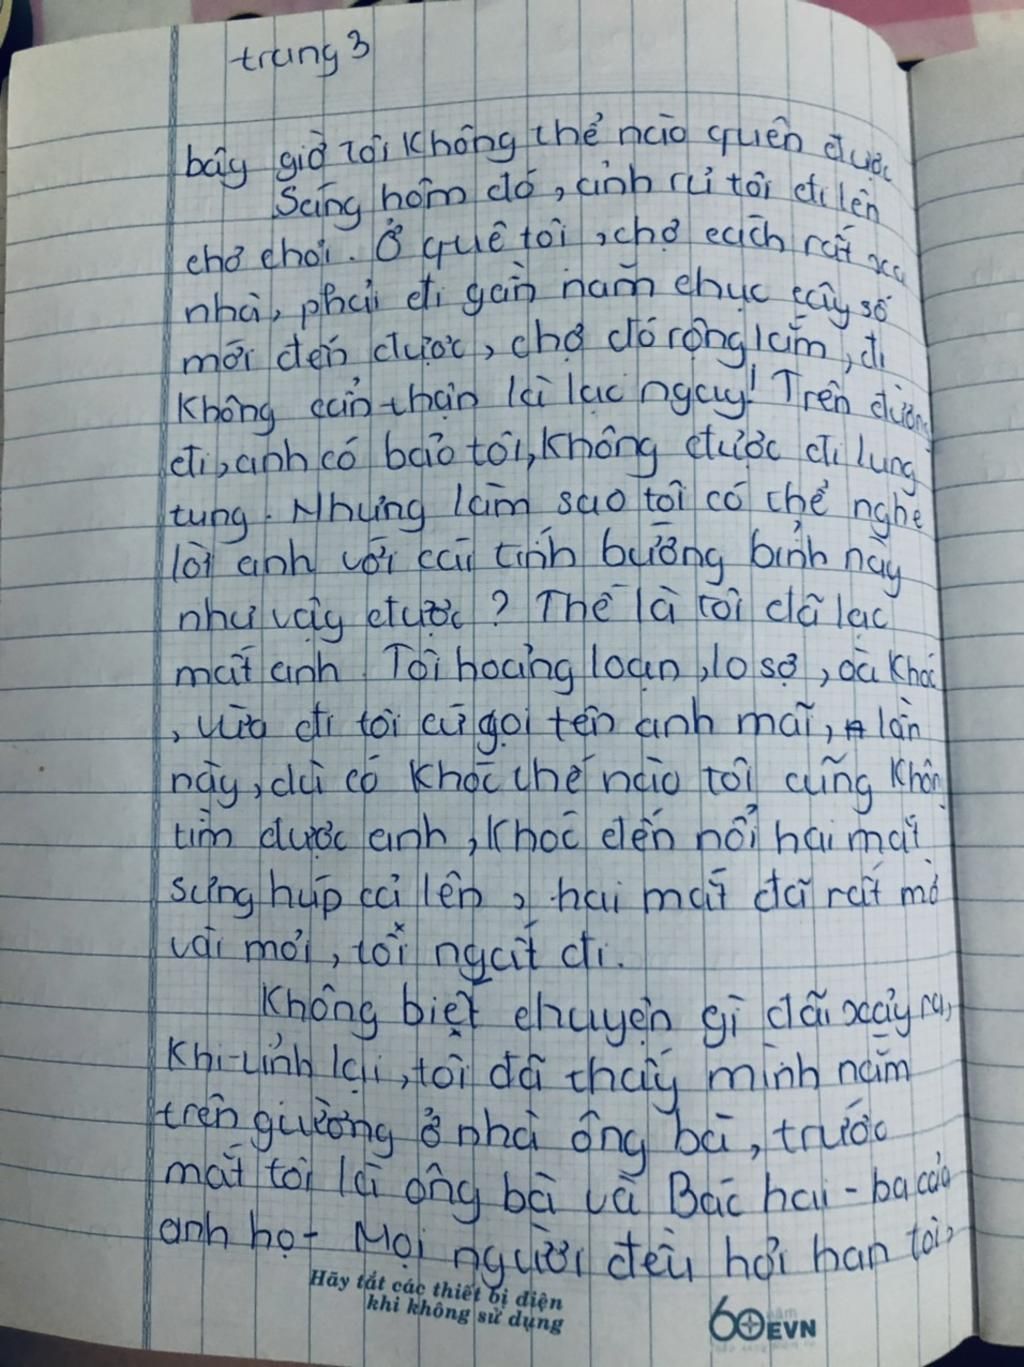 trang 3
bây giờ tôi không thể nào quên được
Sáng hôm đó, anh rủ tôi đi lên
chợ chơi. Ở quê tôi, chợ cách rất xa
nhà, phải đi gần năm chục cây số
mới đến được, chợ đó rộng lắm, đi
không cẩn thận là lạc ngay! Trên đường
đi, anh có bảo tôi, không được đi lung
tung. Nhưng làm sao tôi có thể nghe
lời anh với cái tính bướng bỉnh này
như vậy được? Thế là tôi đã lạc
mất anh. Tôi hoảng loạn, lo sợ, oà khóc
, vừa đi tôi cứ gọi tên anh mãi, lần
này, dù có khóc thế nào tôi cũng khôn
tìm được anh, khóc đến nổi hai mắt
sưng húp cả lên, hai mắt đã rất mờ
vời mỏi, tôi ngất đi.
Không biết chuyện gì đã xảy ra,
khi tỉnh lại, tôi đã thấy mình nằm
trên giường ở nhà ông bà, trước
mắt tôi là ông bà và Bác hai - ba của
anh họ - Mọi người đều hỏi han tôi,
Hãy tắt các thiết bị điện
khi không sử dụng
60 năm EVN